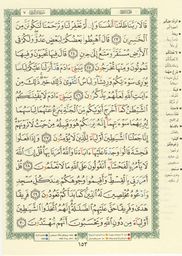 قَالَا رَبَّنَا ظَلَمْنَا أَنفُسَنَا وَإِن لَّمْ تَغْفِرْ لَنَا وَتَرْحَمْنَا لَنَكُونَنَّ مِنَ
الْخَٰسِرِينَ ٢٣ قَالَ اهْبِطُوا بَعْضُكُمْ لِبَعْضٍ عَدُوٌّ وَلَكُمْ فِي
الْأَرْضِ مُسْتَقَرٌّ وَمَتَٰعٌ إِلَىٰ حِينٍ ٢٤ قَالَ فِيهَا تَحْيَوْنَ وَفِيهَا
تَمُوتُونَ وَمِنْهَا تُخْرَجُونَ ٢٥ يَٰبَنِي ءَادَمَ قَدْ أَنزَلْنَا عَلَيْكُمْ لِبَاسًا
يُوَٰرِي سَوْءَٰتِكُمْ وَرِيشًا وَلِبَاسُ التَّقْوَىٰ ذَٰلِكَ خَيْرٌ ذَٰلِكَ مِنْ
ءَايَٰتِ اللَّهِ لَعَلَّهُمْ يَذَّكَّرُونَ ٢٦ يَٰبَنِي ءَادَمَ لَا يَفْتِنَنَّكُمُ
الشَّيْطَٰنُ كَمَا أَخْرَجَ أَبَوَيْكُم مِّنَ الْجَنَّةِ يَنزِعُ عَنْهُمَا لِبَاسَهُمَا
لِيُرِيَهُمَا سَوْءَٰتِهِمَا إِنَّهُ يَرَىٰكُمْ هُوَ وَقَبِيلُهُ مِنْ حَيْثُ لَا تَرَوْنَهُمْ
إِنَّا جَعَلْنَا الشَّيَٰطِينَ أَوْلِيَاءَ لِلَّذِينَ لَا يُؤْمِنُونَ ٢٧ وَإِذَا فَعَلُوا
فَٰحِشَةً قَالُوا وَجَدْنَا عَلَيْهَا ءَابَاءَنَا وَاللَّهُ أَمَرَنَا بِهَا قُلْ إِنَّ اللَّهَ
لَا يَأْمُرُ بِالْفَحْشَاءِ أَتَقُولُونَ عَلَى اللَّهِ مَا لَا تَعْلَمُونَ ٢٨ قُلْ أَمَرَ رَبِّي
بِالْقِسْطِ وَأَقِيمُوا وُجُوهَكُمْ عِندَ كُلِّ مَسْجِدٍ وَادْعُوهُ
مُخْلِصِينَ لَهُ الدِّينَ كَمَا بَدَأَكُمْ تَعُودُونَ ٢٩ فَرِيقًا هَدَىٰ
وَفَرِيقًا حَقَّ عَلَيْهِمُ الضَّلَٰلَةُ إِنَّهُمُ اتَّخَذُوا الشَّيَٰطِينَ
أَوْلِيَاءَ مِن دُونِ اللَّهِ وَيَحْسَبُونَ أَنَّهُم مُّهْتَدُونَ ٣٠
١٥٣